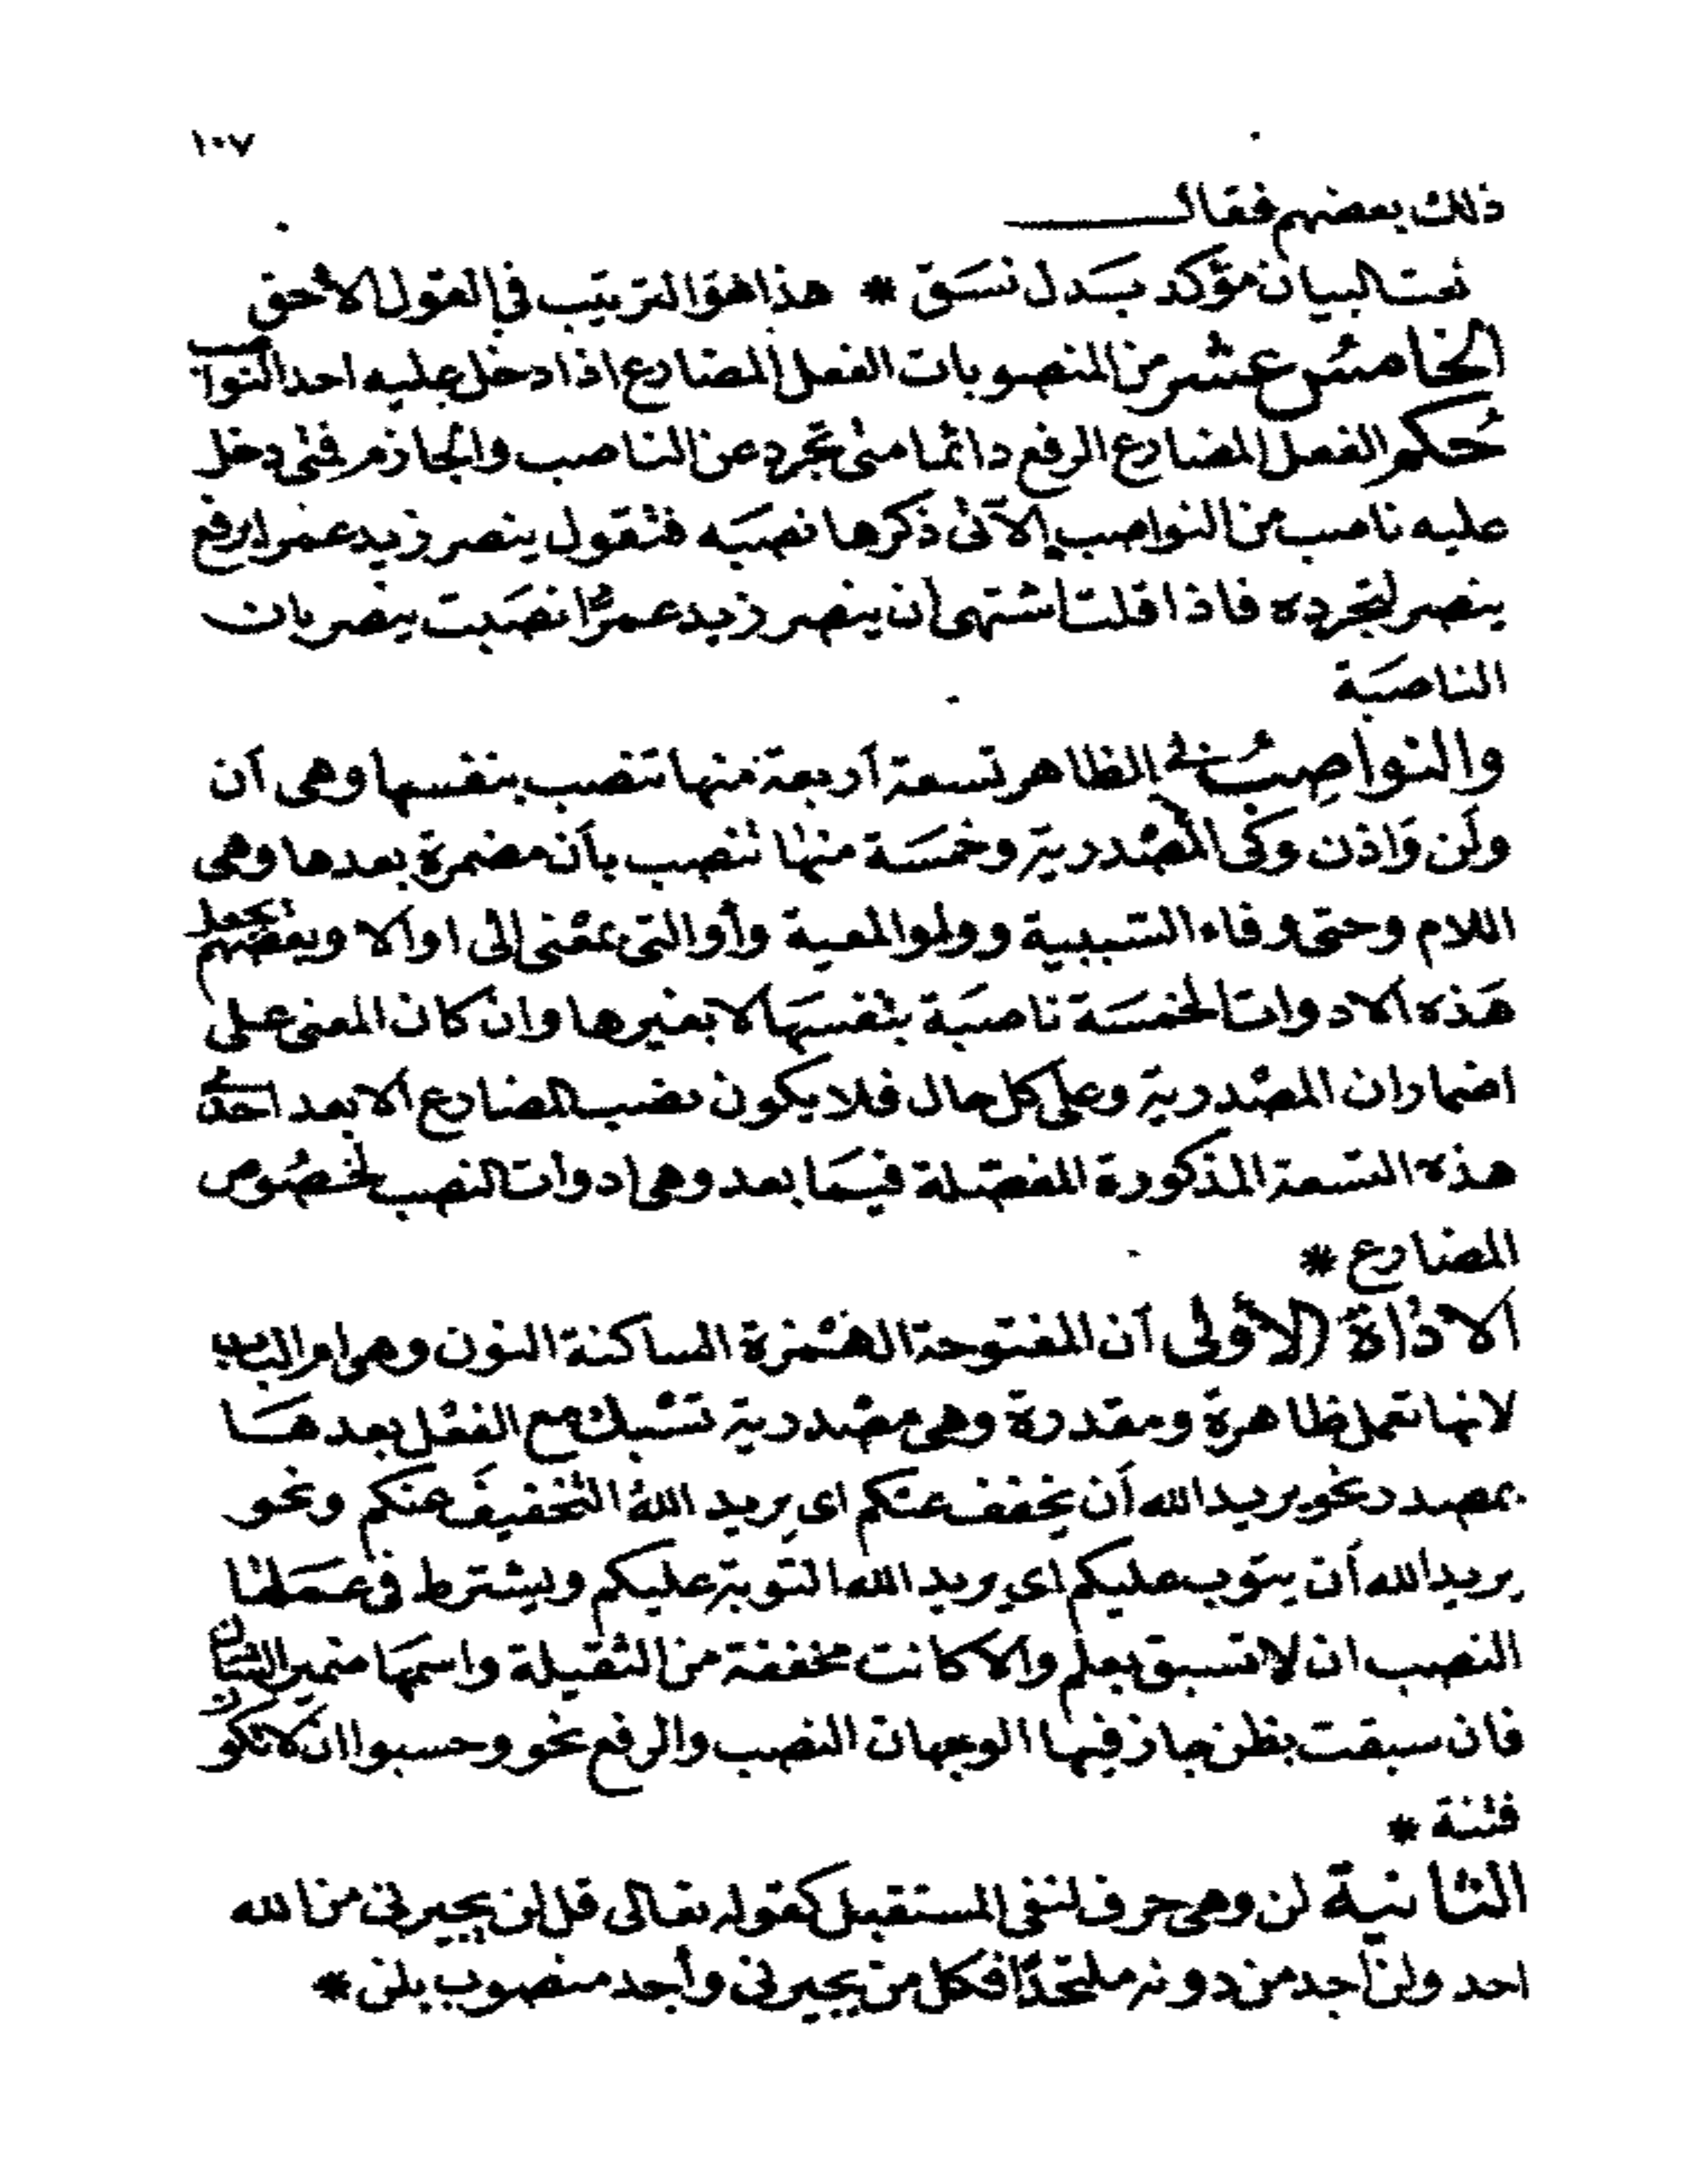 ١٠٧
ذلك بعضهم فقال
نعت البيان مؤكد بَدل نسَق * هذا هوَ الترتيب في القول الأحق
الخامسُ عشر من المنصوبات الفعل المضارع اذا دخل عليه احد النواصب
حُكم الفعل المضارع الرفع دائما متى تجرد عن الناصب والجازم فمتى دخل
عليه ناصب من النواصب الآتى ذكرها نصبَه فتقول ينصر زيد عمرا برفع
ينصر لتجرده فاذا قلت اشتهى ان ينصر زيد عمرًا نصَبت ينصر بان
الناصبَة
والنواصِبُ في الظاهر تسعة أربعة منها تنصب بنفسها وهى أن
ولَن وَاذن وكى المصْدرية وخمسَة منها تنصب بأن مضمرة بعدها وهى
اللام وحتى وفاء السَببية وواو المعية وأو التى بمعْنى إلى او الا وبعضهم يجعل
هَذه الادوات الخمسَة ناصبَة بنفسَها لا بغيرها وان كان المعنى على
اضمار ان المصْدرية وعلى كل حال فلا يكون نصب المضارع الا بعد احدى
هذه التسعة المذكورة المفصّلة فيمَا بعد وهى ادوات النصب لخصُوص
المضارع *
الاداة الأولى أن المفتوحة الهَمْزة الساكنة النون وهى ام الباب
لانها تعمل ظاهرة ومقدرة وهى مصْدرية تسْبك مع الفعْل بعدهَا
بمصدر نحو يريد الله أن يخفف عنكم اى يريد اللهُ التخفيفَ عنكم ونحو
يريد الله أن يتوب عليكم اى يريد الله التوبة عليكم ويشترط فى عمَلها
النصب ان لا تسبق بعلم والا كانت مخففة من الثقيلة واسمهَا ضمير الشان
فان سبقت بظن جاز فيها الوجهان النصب والرفع نحو وحسبوا ان لا تكون
فتنة *
الثانية لن وهى حرف لنفى المستقبل كقوله تعالى قل لن يجيرنى من الله
احد ولن اجد من دونه ملتحدًا فكل من يجيرنى وأجد منصوب بلن *